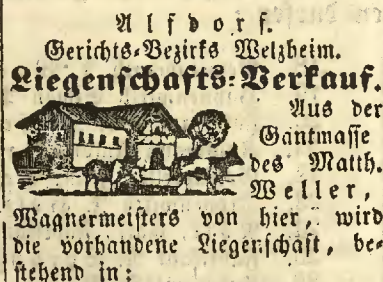 Alfdorf.
Gerichts-Bezirks Welzheim.
Liegenschafts-Verkauf.
Aus der
Gantmasse
des Matth.
Weller,
Wagnermeisters von hier, wird
die vorhandene Liegenschaft, be-
stehend in: